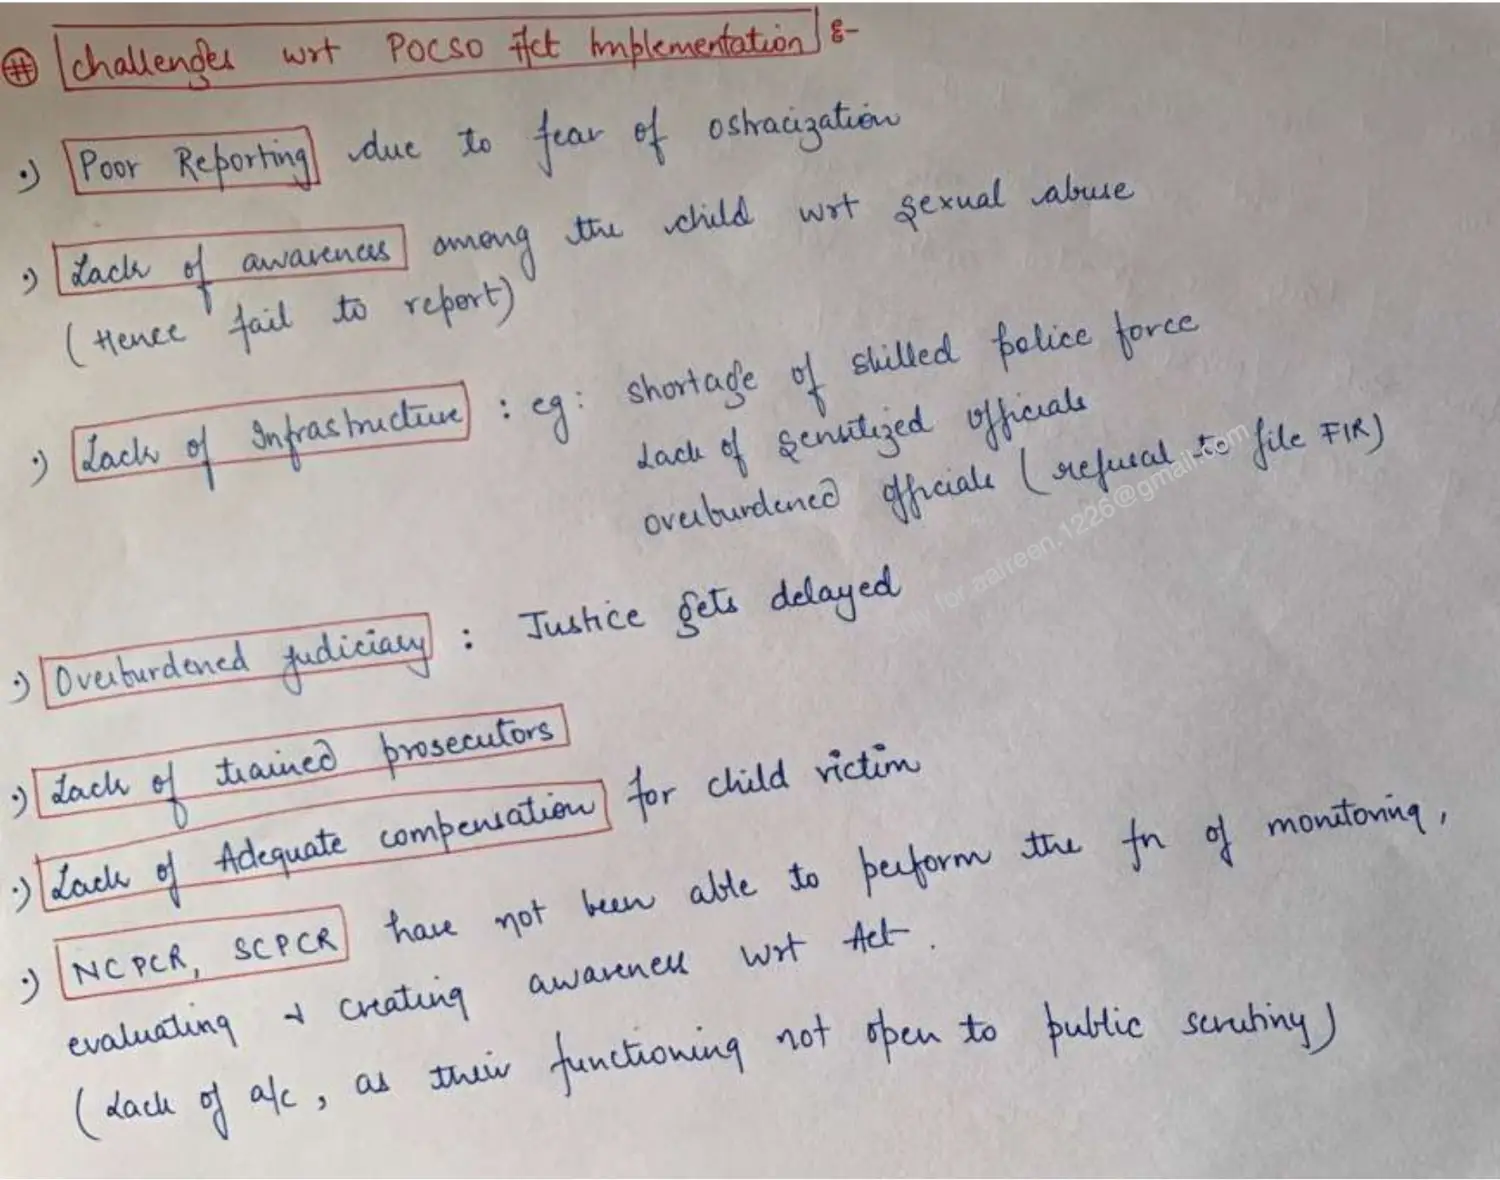 # Challenges wrt POCSO Act Implementation :-
·) Poor Reporting due to fear of ostracization
·) Lack of awareness among the child wrt sexual abuse
(Hence fail to report)
·) Lack of Infrastructure : eg: shortage of skilled police force
Lack of sensitized officials
overburdened officials (refusal to file FIR)
·) Overburdened judiciary : Justice gets delayed
·) Lack of trained prosecutors
·) Lack of Adequate compensation for child victim
·) NCPCR, SCPCR have not been able to perform the fn of monitoring,
evaluating & creating awareness wrt Act.
(Lack of a/c, as their functioning not open to public scrutiny)
for aaireen.1226@gmail.com